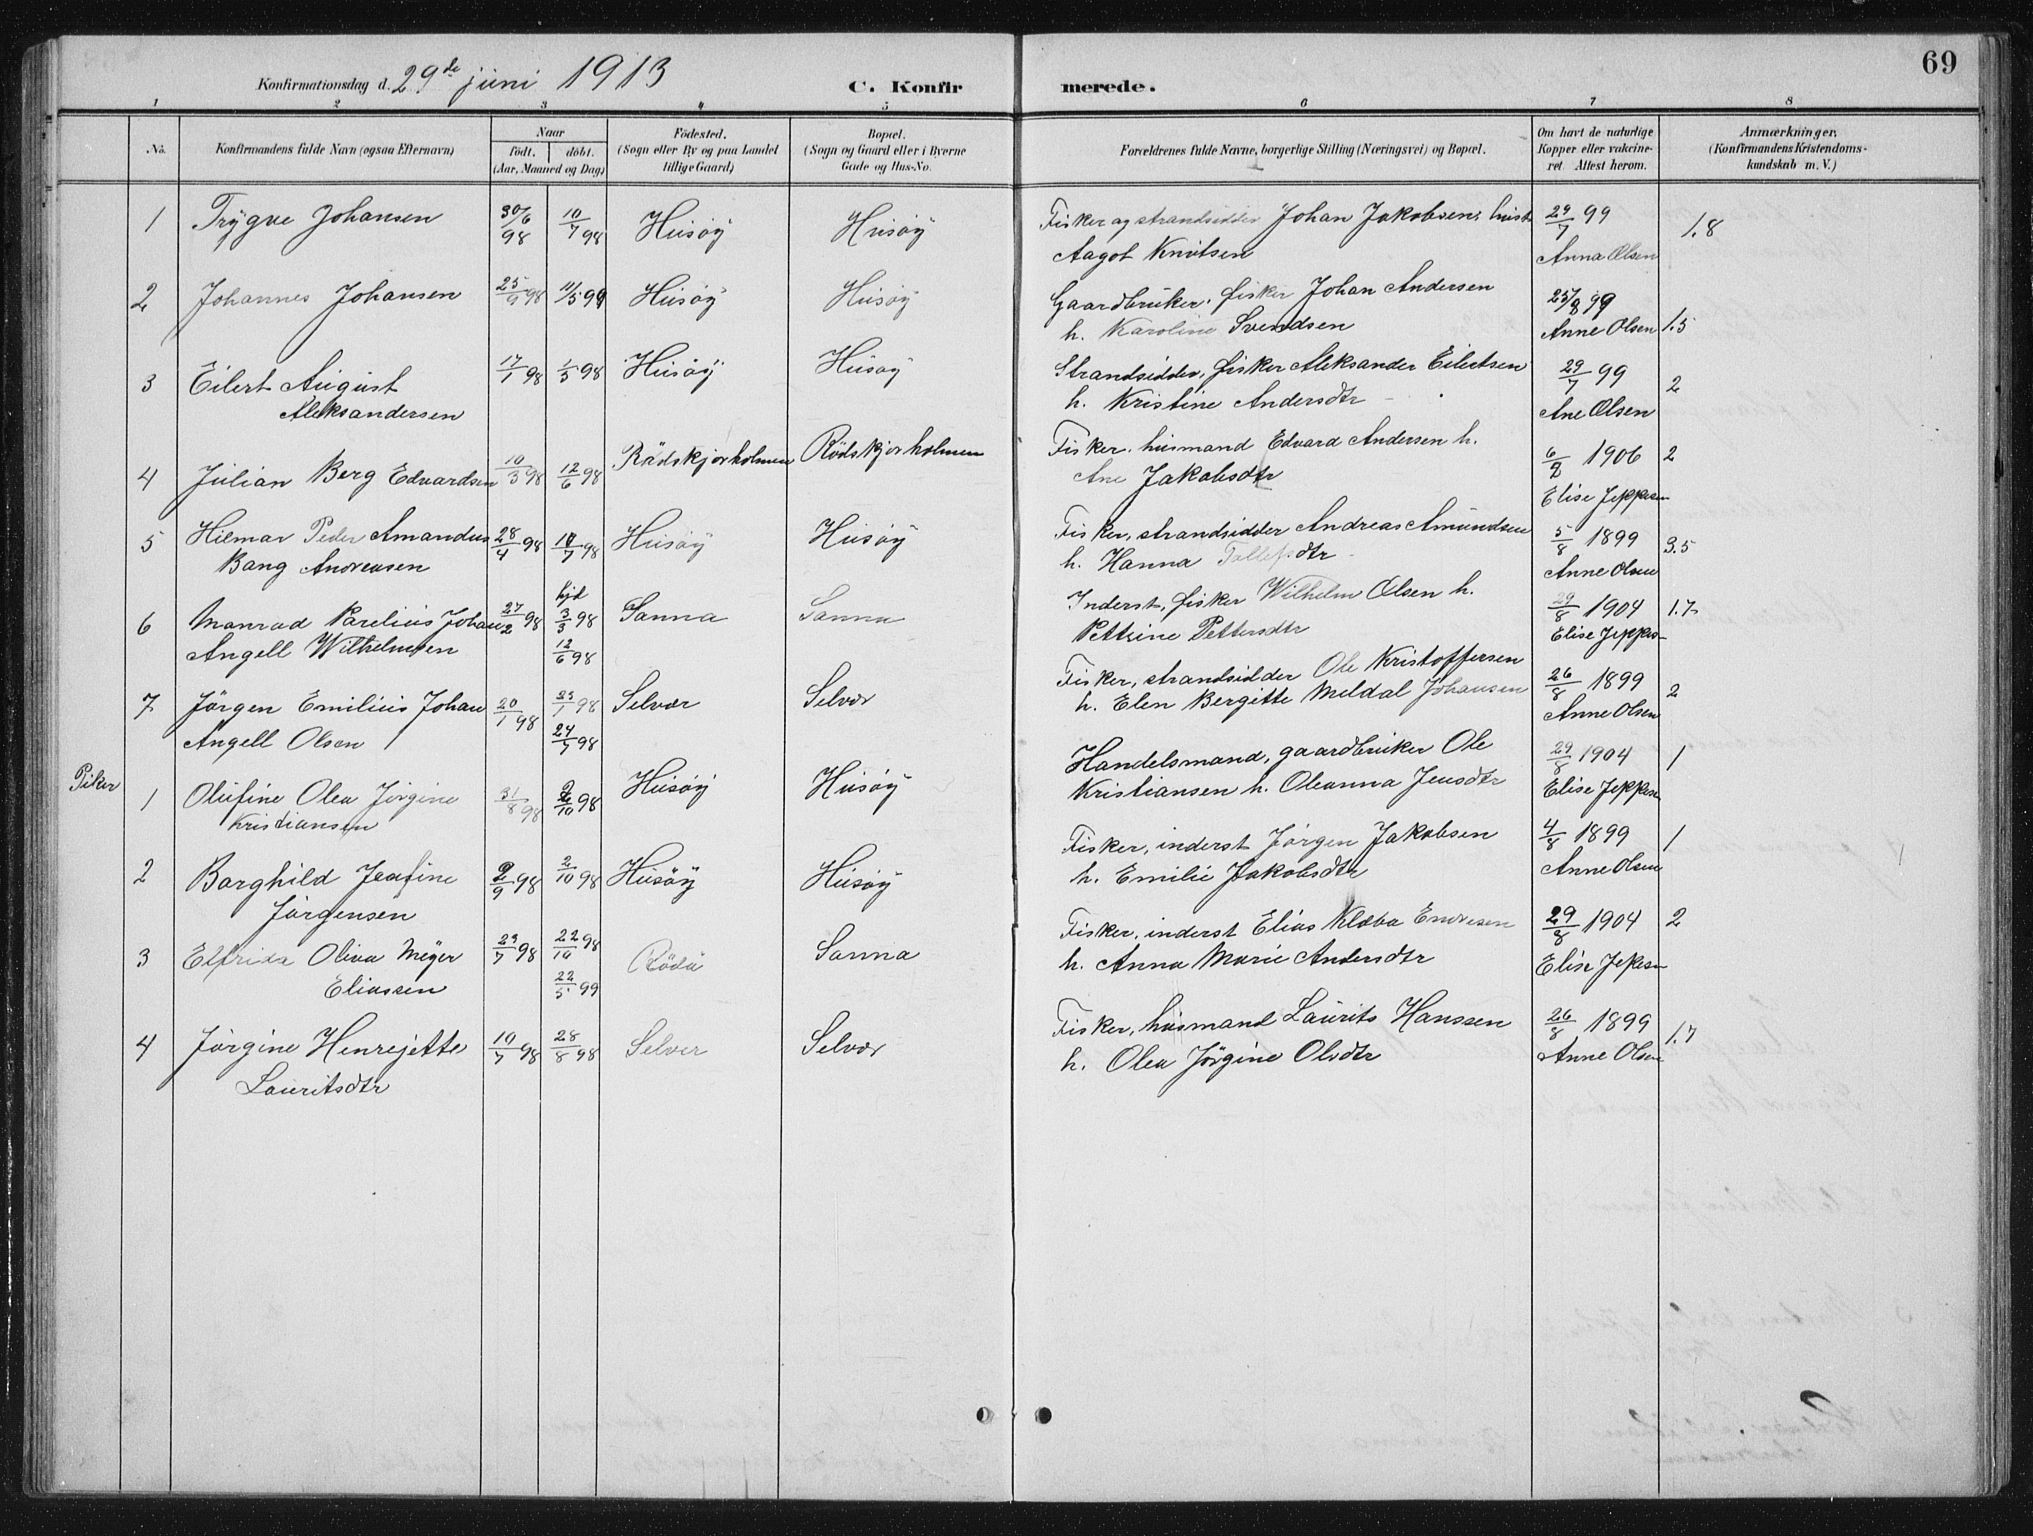 69
Konfirmationsdag d. 29de juni 1913 C. Konfirmerede.
1 2 3 4 5 6 7 8
No. Konfirmandens fulde Navn (ogsaa Efternavn) Naar Födested. Bopæl. Forældrenes fulde Navne, borgerlige Stilling (Næringsvei) og Bopæl. Om havt de naturlige Anmærkninger.
födt. döbt. (Sogn eller By og paa Landet (Sogn og Gaard eller i Byerne Kopper eller vakcine- (Konfirmandens Kristendoms-
(Aar, Maaned og Dag) tillige Gaard) Gade og Hus-No. ret. Attest herom. kundskab m. V.)
1 Trygve Johansen 30/6 98 10/7 98 Husöy Husöy Fisker og strandsidder Johan Jakobsen, hust. 29/7 99 1.8
Aagot Knutsen Anna Olsen
2 Johannes Johansen 25/9 98 11/5 99 Husöy Husöy Gaardbruker, fisker Johan Andersen 25/8 99
h. Karoline Svendsen Anne Olsen 1.5
3 Eilert August 17/1 98 1/5 98 Husöy Husöy Strandsidder, fisker Aleksander Eilertsen 29/7 99 2
Aleksandersen h. Kristine Andersdtr Ane Olsen
4 Julian Berg Edvardsen 10/3 98 12/6 98 Rödskjærholmen Rödskjærholmen Fisker, husmand Edvard Andersen h. 6/8 1906 2
Ane Jakobsdtr Elise Jeppesen
5 Hilmar Peder Amandus 28/4 98 10/7 98 Husöy Husöy Fisker, strandsidder Andreas Amundsen 5/8 1899 3.5
Bang Andreasen h. Hanna Tollefsdtr Anne Olsen
6 Manrad Parelius Johan 27/2 98 hjd 3/3 98 Sanna Sanna Inderst, fisker Wilhelm Olsen h. 29/8 1904 1.7
Angell Wilhelmsen 12/6 98 Pettrine Pettersdtr Elise Jeppesen
7 Jörgen Emilius Johan 20/1 98 23/1 98 Selvær Selvær Fisker, strandsidder Ole Kristoffersen 26/8 1899 2
Angell Olsen 24/7 98 h. Elen Bergitte Meldal Johansen Anne Olsen
Piker 1 Olufine Olea Jörgine 31/8 98 2/10 98 Husöy Husöy Handelsmand, gaardbruker Ole 29/8 1904 1
Kristiansen Kristiansen h. Oleanna Jensdtr Elise Jeppesen
2 Borghild Josefine 2/9 98 2/10 98 Husöy Husöy Fisker, inderst Jörgen Jakobsen 4/8 1899 1
Jörgensen h. Emilie Jakobsdtr Anne Olsen
3 Elfrida Oliva Meyer 23/7 98 22/10 98 Rödö Sanna Fisker, inderst Elias Klæbo Endresen 29/8 1904 2
Eliassen 22/5 99 h. Anna Marie Andersdtr Elise Jepesen
4 Jörgine Henrejette 10/7 98 28/8 98 Selvær Selvær Fisker, husmand Laurits Hanssen 26/8 1899 1.7
Lauritsdtr h. Olea Jörgine Olsdtr Anne Olsen